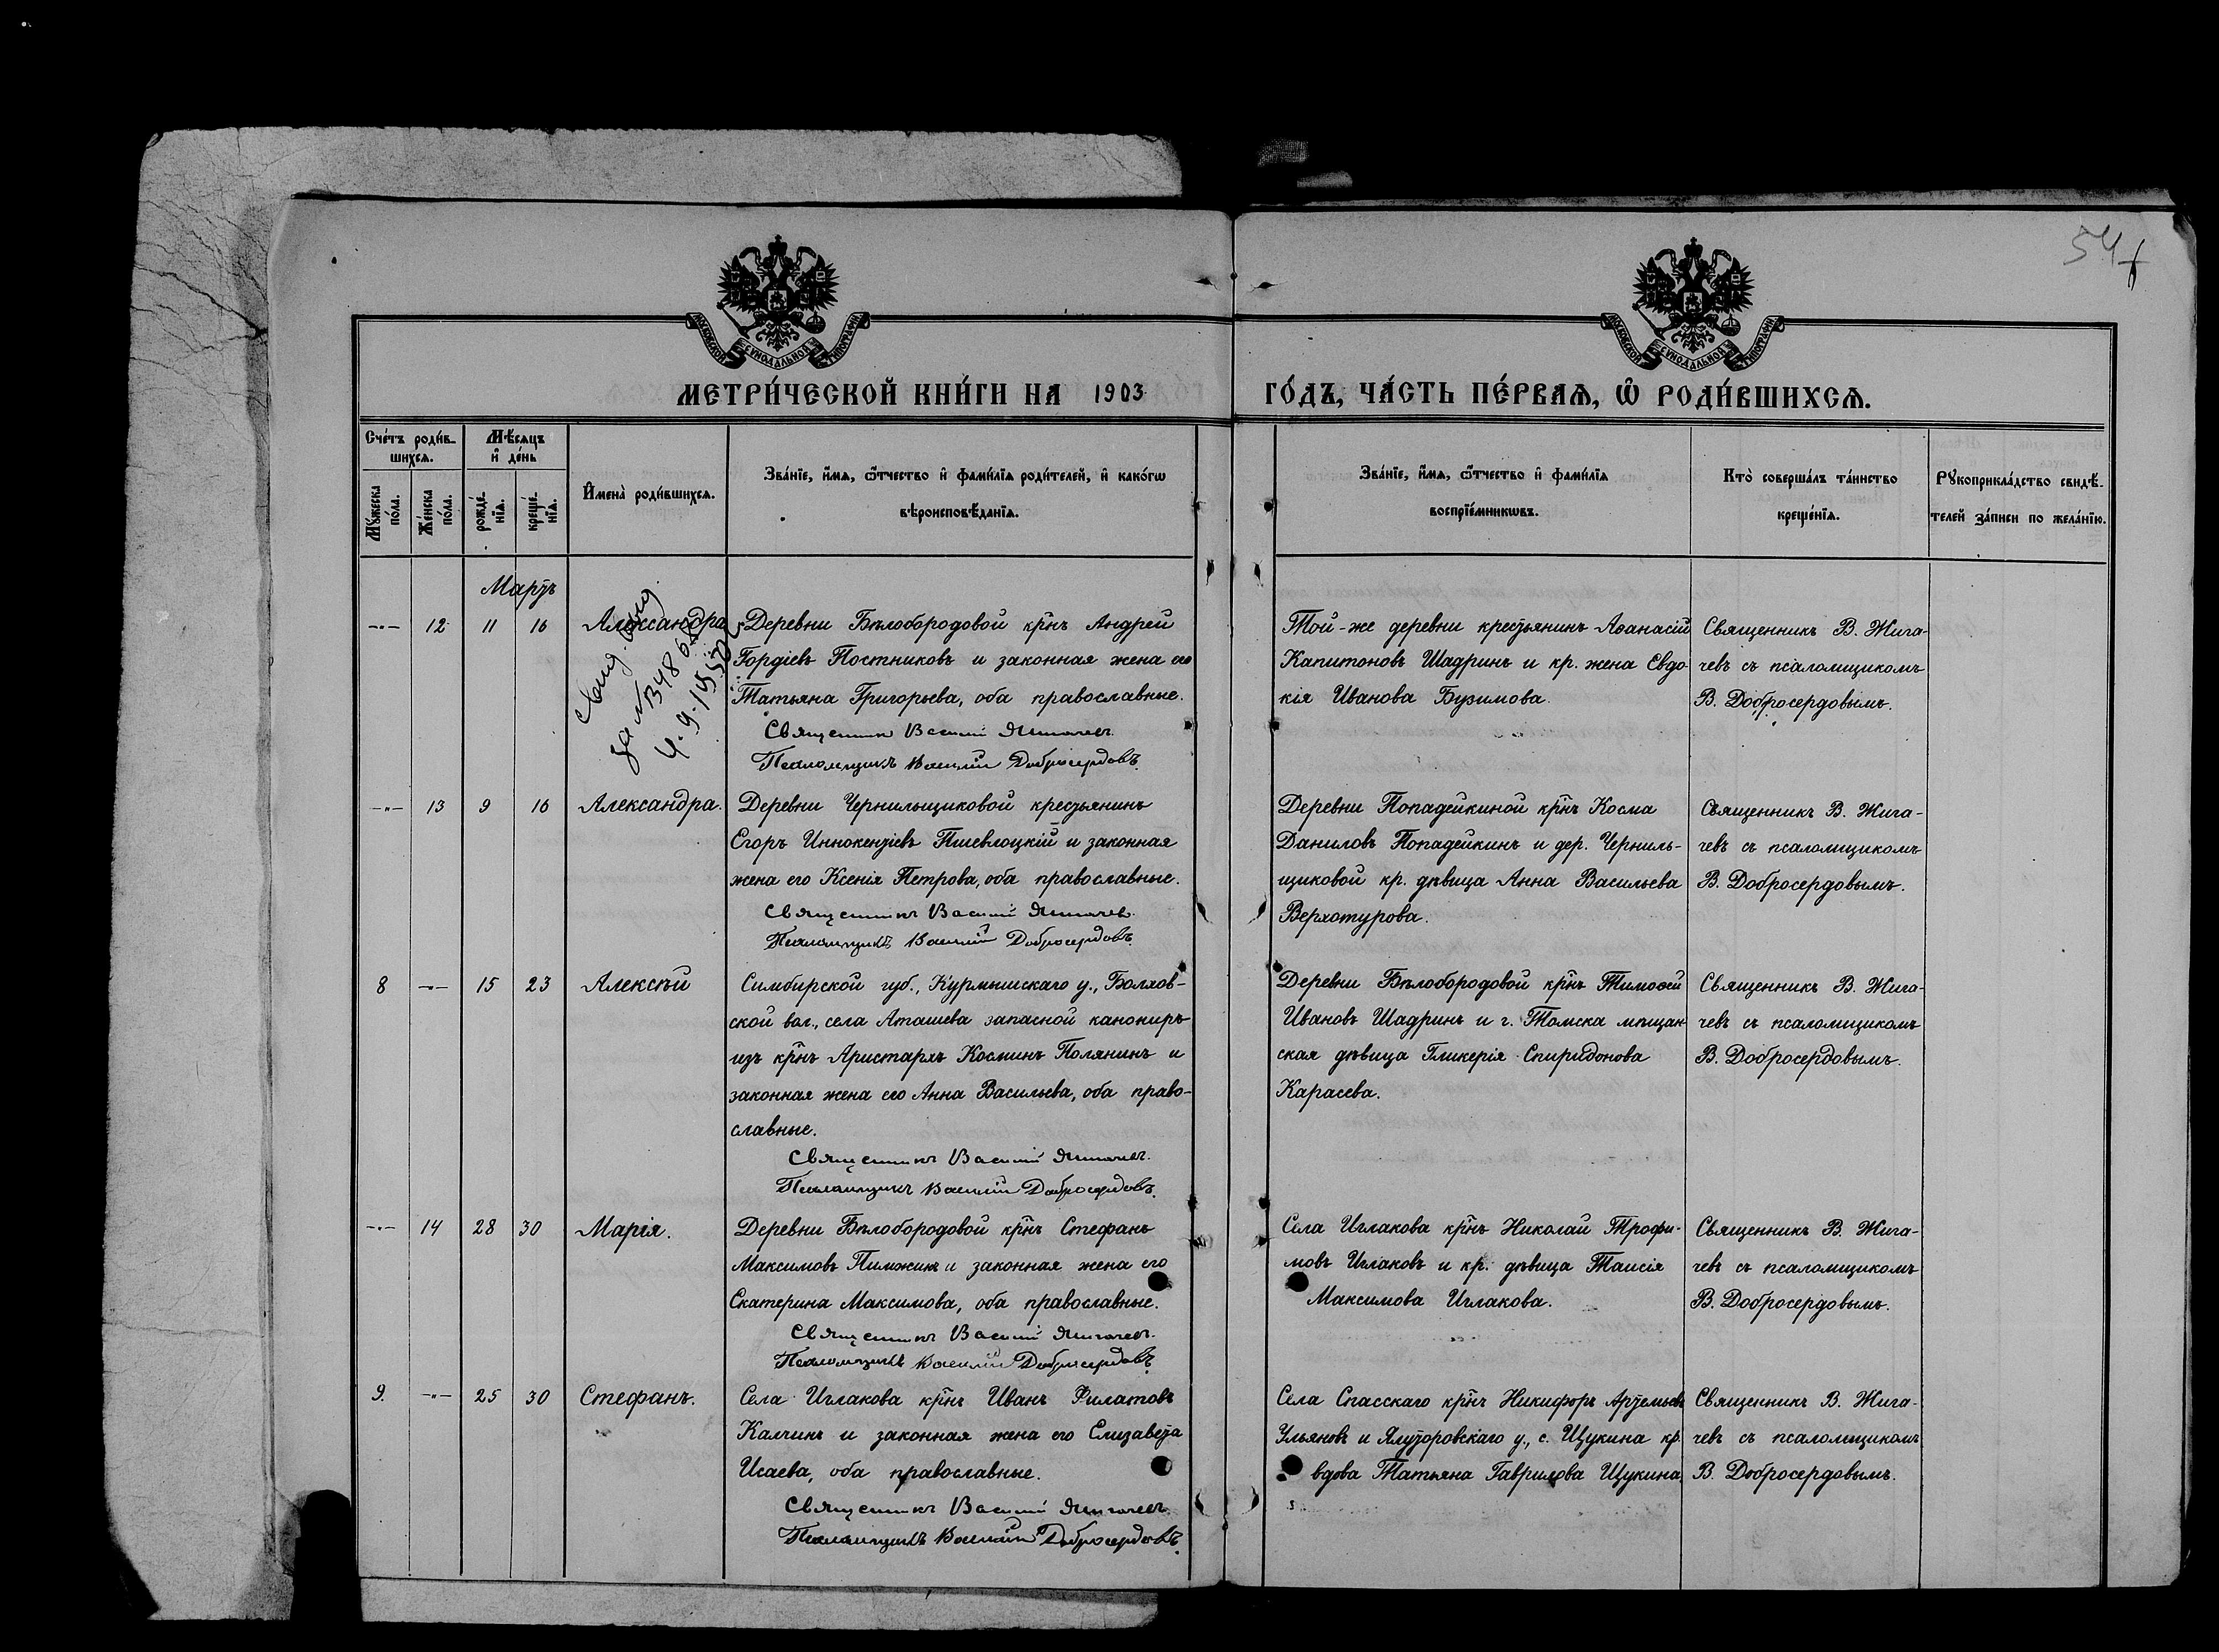 54
МОСКОВСКОЙ СѴНОДАЛЬНОЙ ТИПОГРАФІИ
МОСКОВСКОЙ СѴНОДАЛЬНОЙ ТИПОГРАФІИ
МЕТРИ́ЧЕСКОЙ КНИ́ГИ НА 1903 ГО́ДЪ, ЧА́СТЬ ПЕ́РВАѦ, Ѡ РОДИ́ВШИХСѦ.
Сче́тъ роди́в-
шихсѧ.
Мѣ́сѧцъ
и҆ де́нь
Мꙋ́жеска
по́ла.
Же́нска
по́ла.
рожде́-
нїѧ.
креще́-
нїѧ.
И҆мена̀ роди́вшихсѧ.
Зва́нїе, и҆́мѧ, ѻ҆́тчество и҆ фами́лїѧ роди́телей, и҆ како́гѡ
вѣроисповѣ́данїѧ.
Зва́нїе, и҆́мѧ, ѻ҆́тчество и҆ фами́лїѧ
воспрїе́мникѡвъ.
Кто̀ соверша́лъ та́инство
креще́нїѧ.
Рꙋкоприкла́дство свидѣ́-
телей за́писи по жела́нїю.
Мартъ
-"- 12 11 16 Александра
Деревни Бѣлобородовой кр̃нъ Андрей
Гордіевъ Постниковъ и законная жена его
Татьяна Григорьева, оба православные.
Священникъ Василій Жигачевъ.
Псаломщикъ Василій Добросердовъ.
Той-же деревни крестьянинъ Аѳанасій
Капитоновъ Шадринъ и кр. жена Евдо-
кія Иванова Бузимова.
Священникъ В. Жига-
чевъ съ псаломщикомъ
В. Добросердовымъ.
-"- 13 9 16 Александра.
Деревни Чернильщиковой крестьянинъ
Егоръ Иннокентіевъ Пшевлоцкій и законная
жена его Ксенія Петрова, оба православные.
Священникъ Василій Жигачевъ.
Псаломщикъ Василій Добросердовъ.
Деревни Попадейкиной кр̃нъ Косма
Даниловъ Попадейкинъ и дер. Черниль-
щиковой кр. дѣвица Анна Васильева
Верхотурова.
Священникъ В. Жига-
чевъ съ псаломщикомъ
В. Добросердовымъ.
8 -"- 15 23 Алексѣй
Симбирской губ., Курмышскаго у., Болхов-
ской вол., села Аташева запасной канониръ
изъ кр̃нъ Аристархъ Косминъ Полянинъ и
законная жена его Анна Васильева, оба право-
славные.
Священникъ Василій Жигачевъ.
Псаломщикъ Василій Добросердовъ.
Деревни Бѣлобородовой кр̃нъ Тимоѳей
Ивановъ Шадринъ и г. Томска мѣщан
ская дѣвица Гликерія Спиридонова
Карасева.
Священникъ В. Жига-
чевъ съ псаломщикомъ
В. Добросердовымъ.
-"- 14 28 30 Марія.
Деревни Бѣлобородовой кр̃нъ Стефанъ
Максимовъ Пимжинъ и законная жена его
Екатерина Максимова, оба православные.
Священникъ Василій Жигачевъ.
Псаломщикъ Василій Добросердовъ.
Села Иглакова кр̃нъ Николай Трофи-
мовъ Иглаковъ и кр. дѣвица Таисія
Максимова Иглакова.
Священникъ В. Жига-
чевъ съ псаломщикомъ
В. Добросердовымъ.
9. -"- 25 30 Стефанъ.
Села Иглакова кр̃нъ Иванъ Филатовъ
Калчинъ и законная жена его Елизавета
Исаева, оба православные.
Священникъ Василій Жигачевъ.
Псаломщикъ Василій Добросердовъ.
Села Спасскаго кр̃нъ Никифоръ Артемьевъ
Ульяновъ и Ялуторовскаго у., с. Щукина кр.
вдова Татьяна Гаврилова Щукина
Священникъ В. Жига-
чевъ съ псаломщикомъ
В. Добросердовымъ.